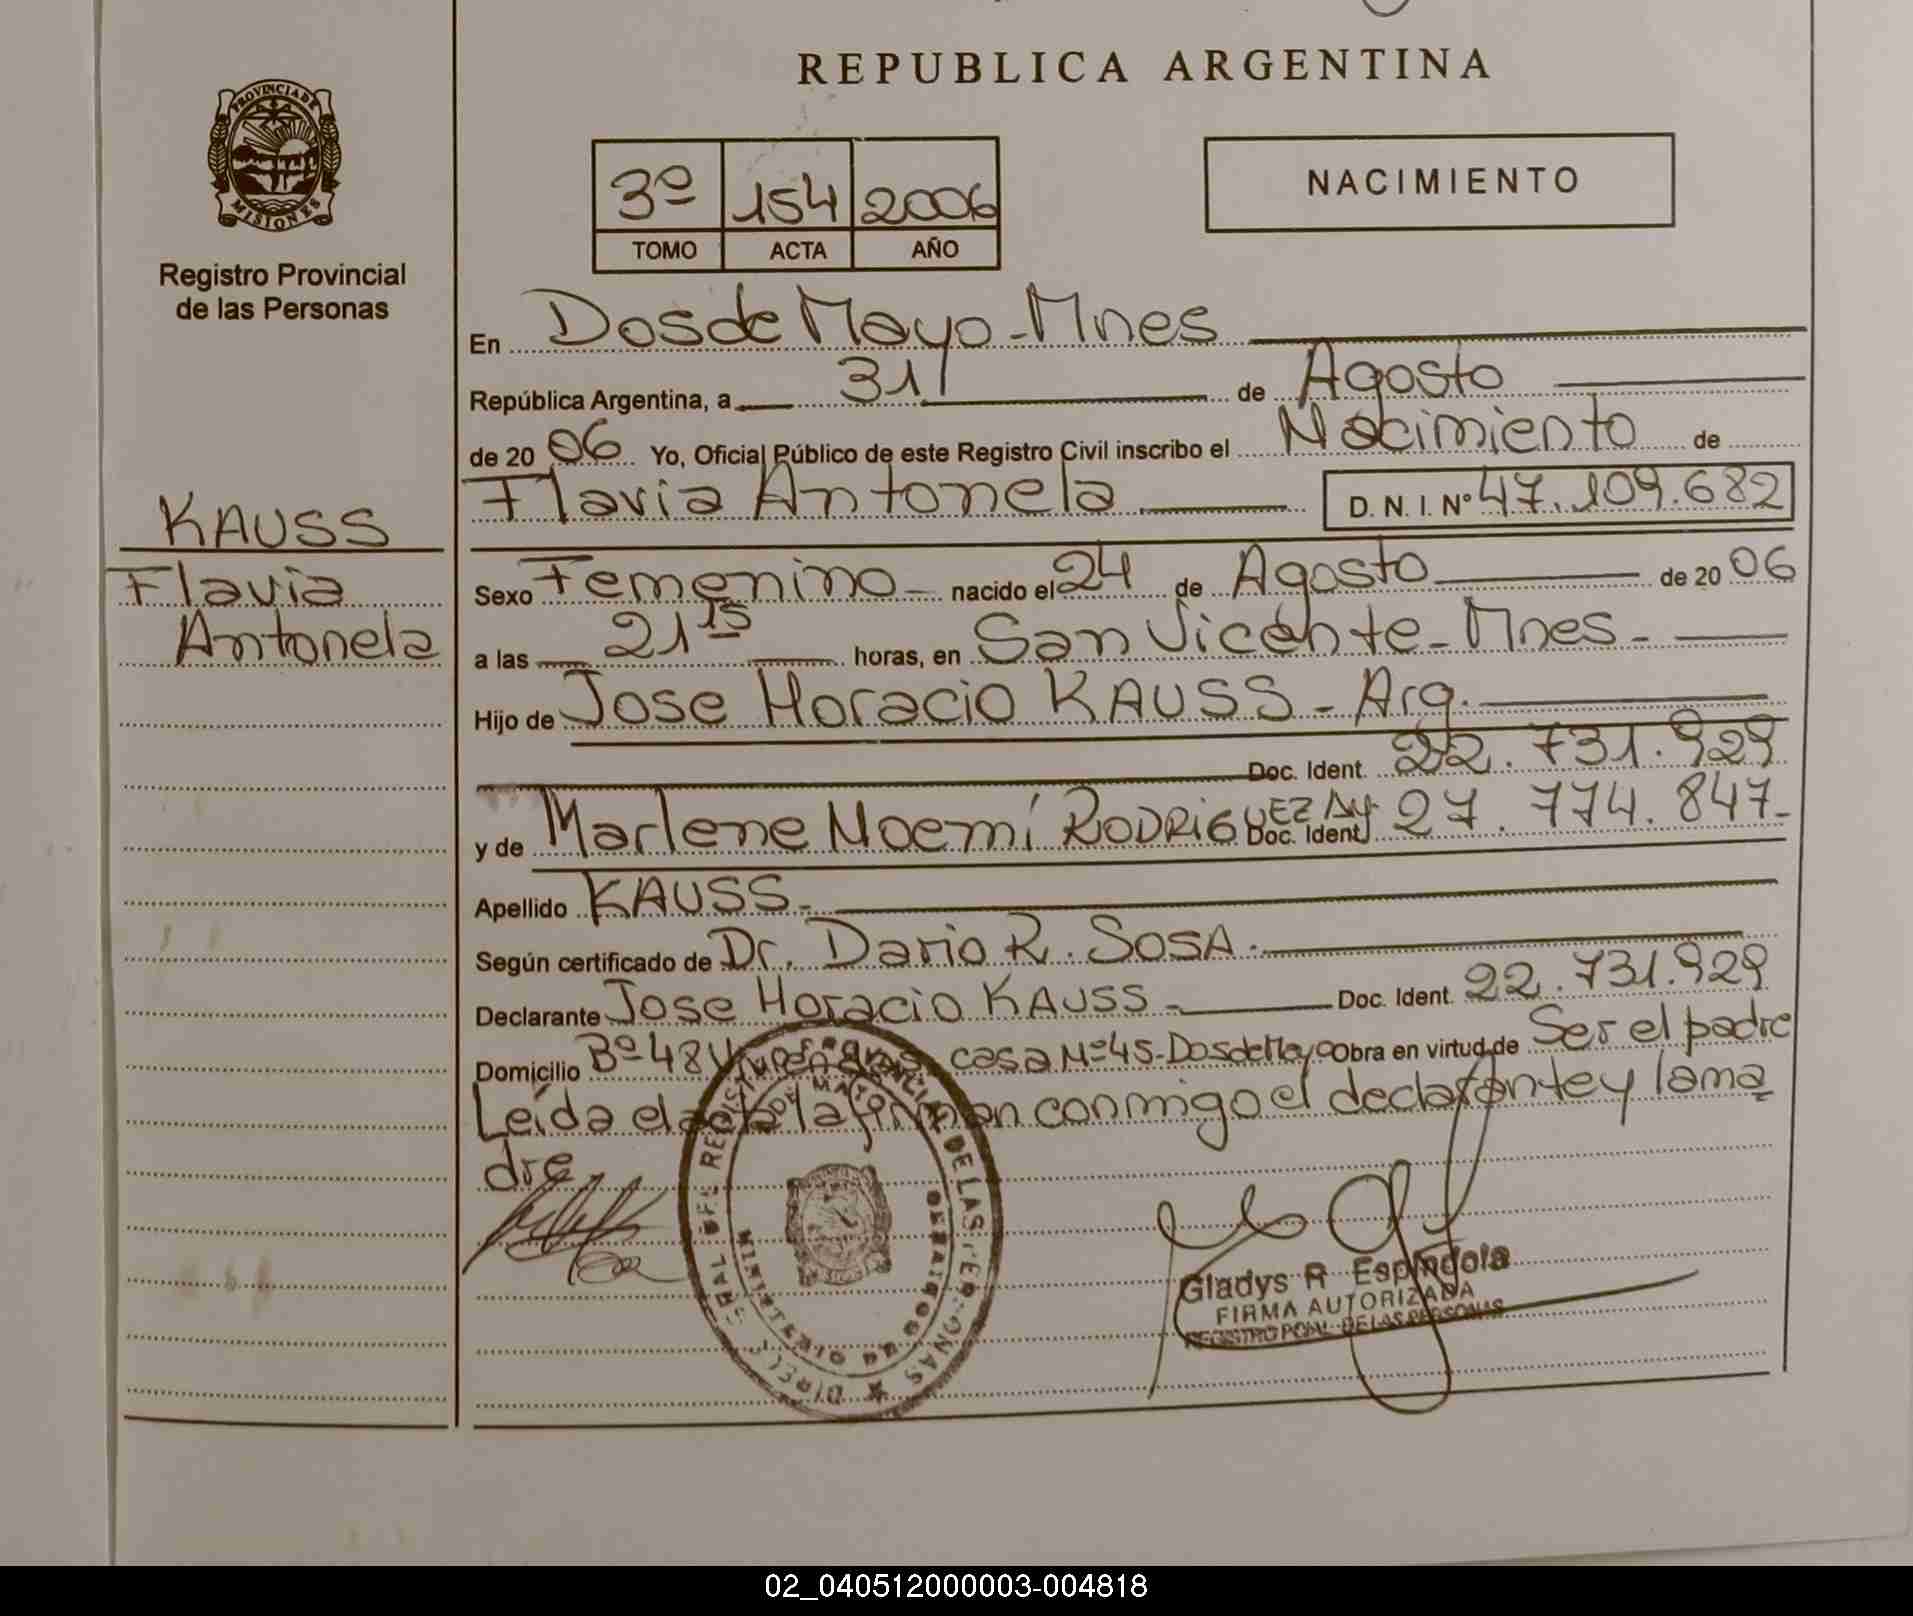 REPUBLICA ARGENTINA
PROVINCIA DE
MISIONES
Registro Provincial
de las Personas
3º 154 2006
TOMO ACTA AÑO
NACIMIENTO
KAUSS
Flavia
Antonela
En Dos de Mayo - Mnes
República Argentina, a 31 de Agosto
de 2006 Yo, Oficial Público de este Registro Civil inscribo el Nacimiento de
Flavia Antonela D. N. I. Nº 47.109.682
Sexo Femenino - nacido el 24 de Agosto de 2006
a las 21 15 horas, en San Vicente - Mnes -
Hijo de Jose Horacio KAUSS - Arg.
Doc. Ident. 22.731.929
y de Marlene Noemí RODRIGUEZ Doc. Ident. 27.774.847-
Apellido KAUSS -
Según certificado de Dr. Dario R. SOSA.
Declarante Jose Horacio KAUSS - Doc. Ident. 22.731.929
Domicilio Bº 48 Viviendas casa Nº 45 - Dos de Mayo Obra en virtud de Ser el padre
Leída el acta la firman conmigo el declarante y la ma
dre
DE MAYO
MINISTERIO DE
Gladys R Espindola
FIRMA AUTORIZADA
REGISTRO PCIAL. DE LAS PERSONAS
02_040512000003-004818